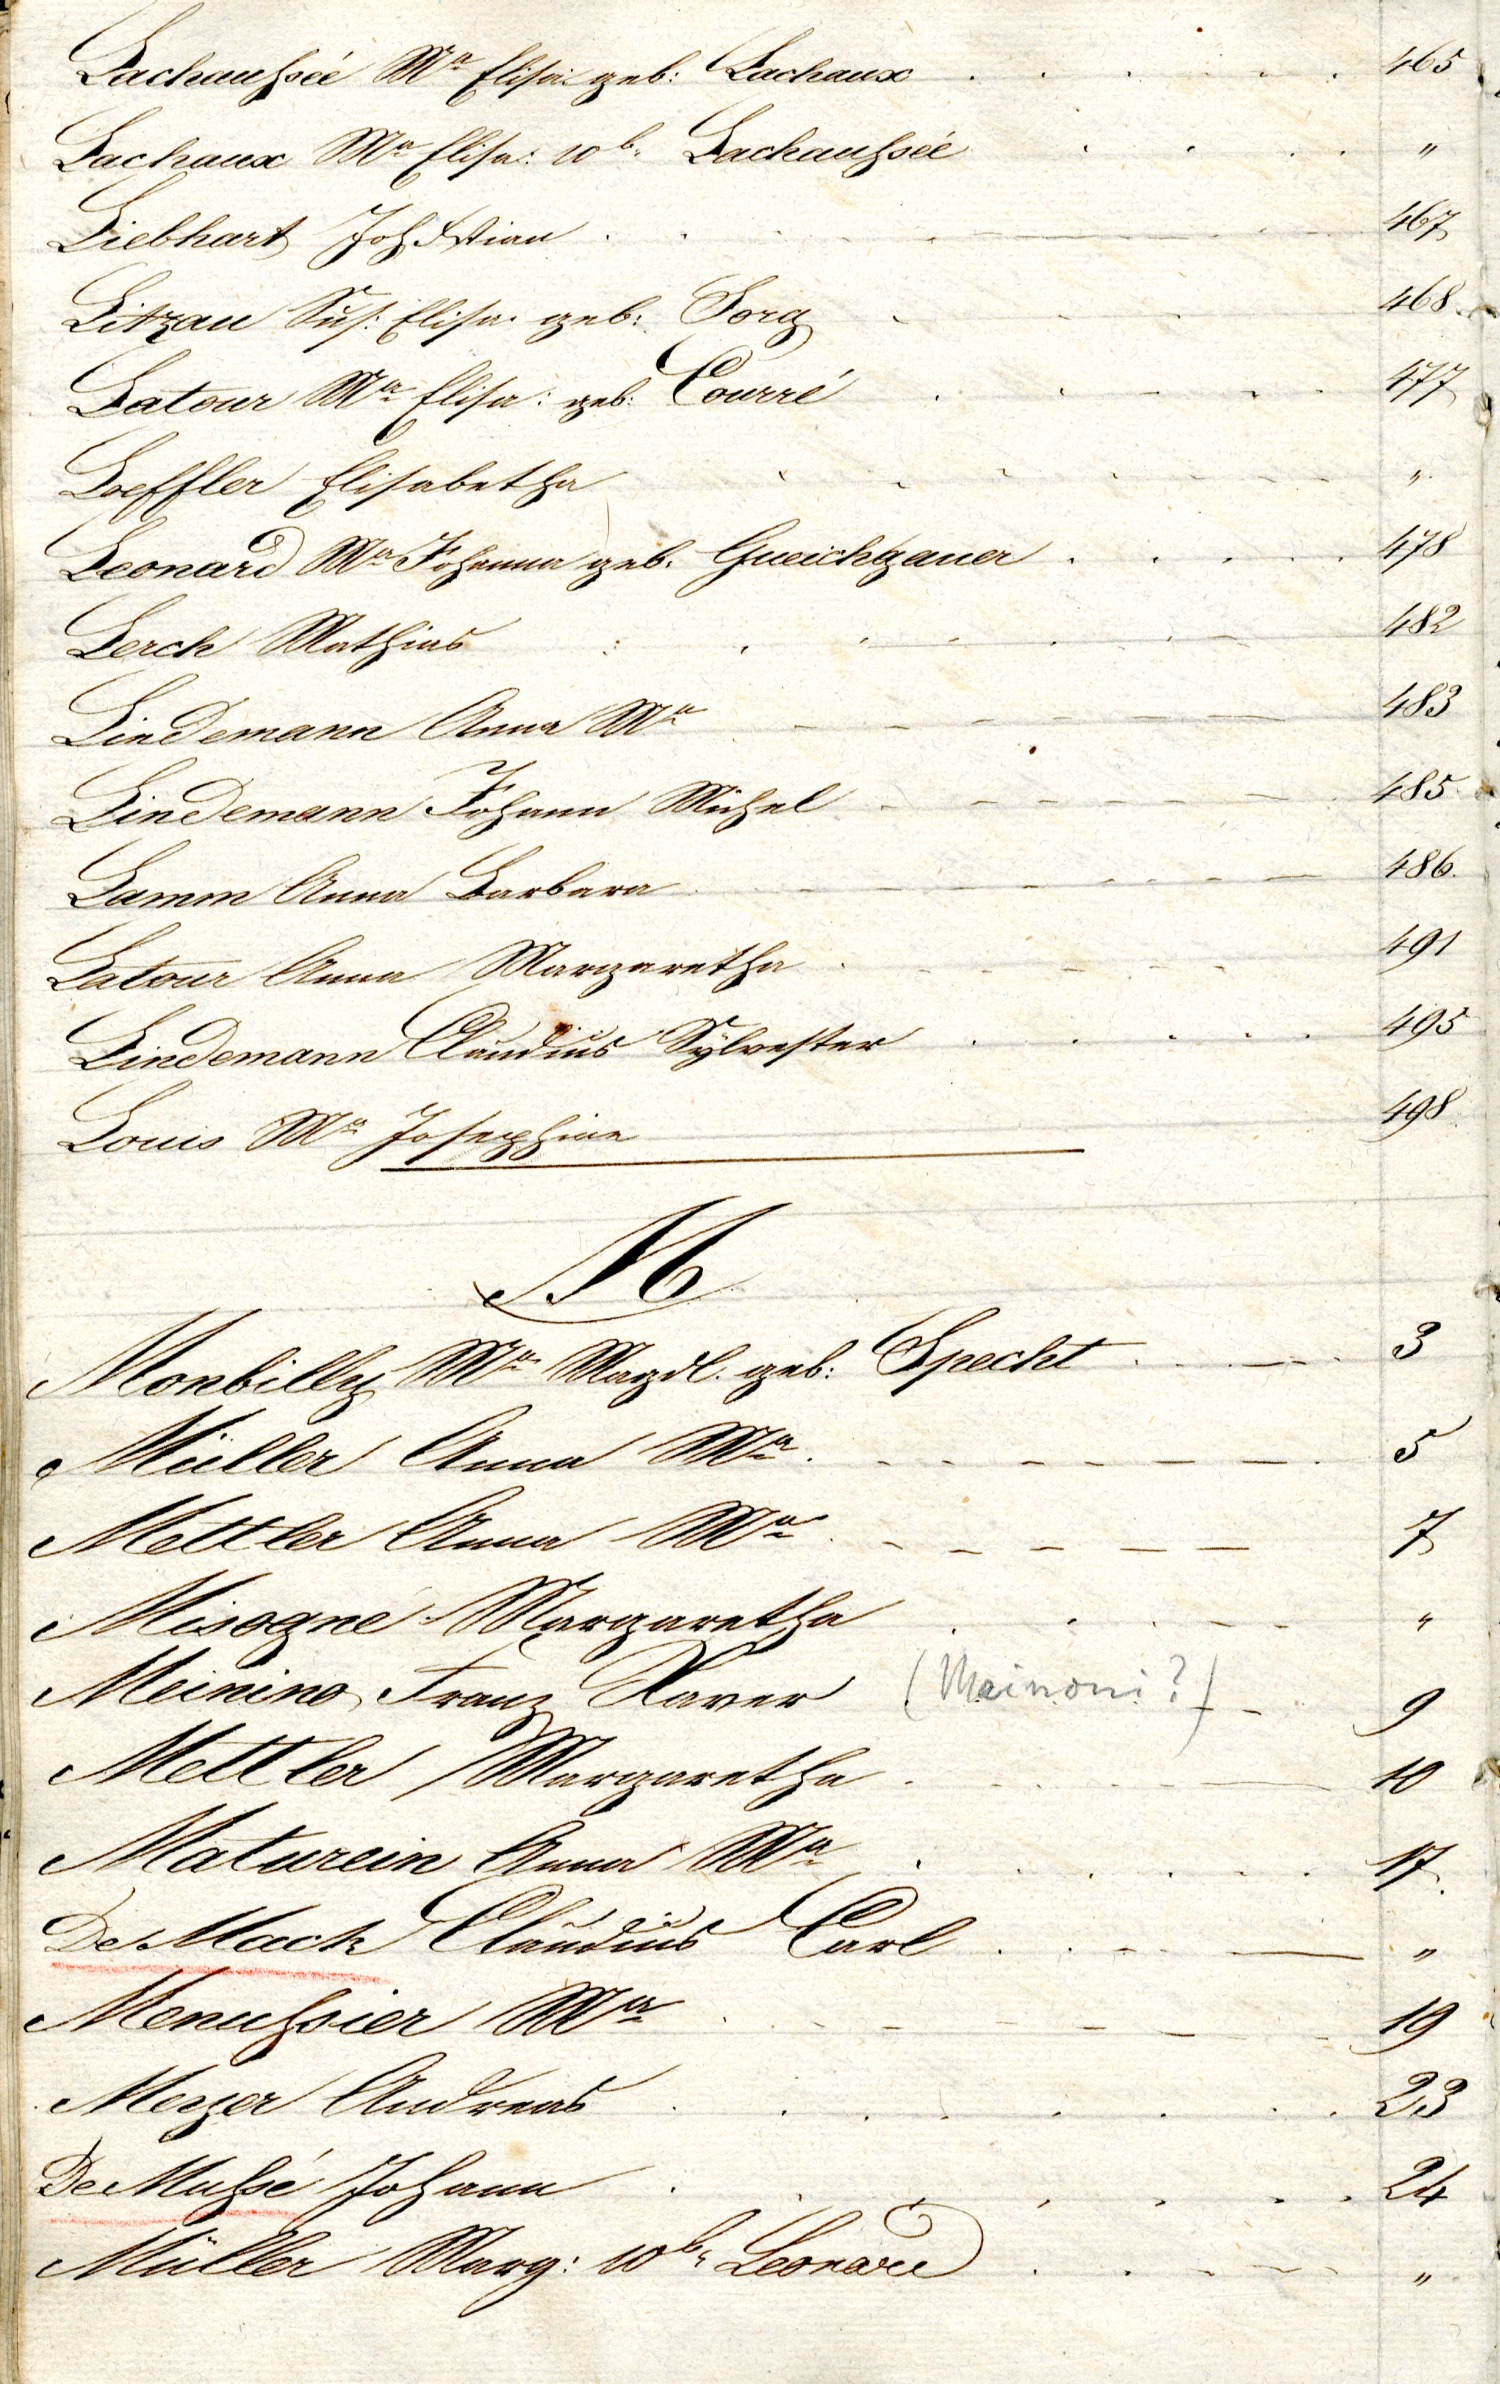 Lachaußée Mᵃ Elisa: geb: Lachaux 465
Lachaux Mᵃ Elisa: wb: Lachaußée "
Liebhart Joh Stian 467
Litzau Sus: Elisa: geb: Sorg 468.
Latour Mᵃ Elisa: geb: Courré 477
Loeffler Elisabetha "
Leonard Mᵃ Johanna geb. 478
Lerch Mathias 482
Lindemann Anna Mᵃ 483
Lindemann Johann Michel 485
Lamm Anna Barbara 486.
Latour Anna Margaretha 491
Lindemann Claudius Sylvester 495
Louis Mᵃ Josephine 498
M
Monbilly Mᵃ Magdl. geb: Specht 3
Müller Anna Mᵃ 5
Mettler Anna Mᵃ 7
Misogné Margaretha "
Meinino Franz Xaver (Mainoni?) 9
Mettler Margaretha 10
Maturein Anna Mᵃ 17
De Mack Claudius Carl "
Menußier Mᵃ 19
Meyer Andreas 23
De Mußé Johann 24
Müller Marg: wb: Leonard "